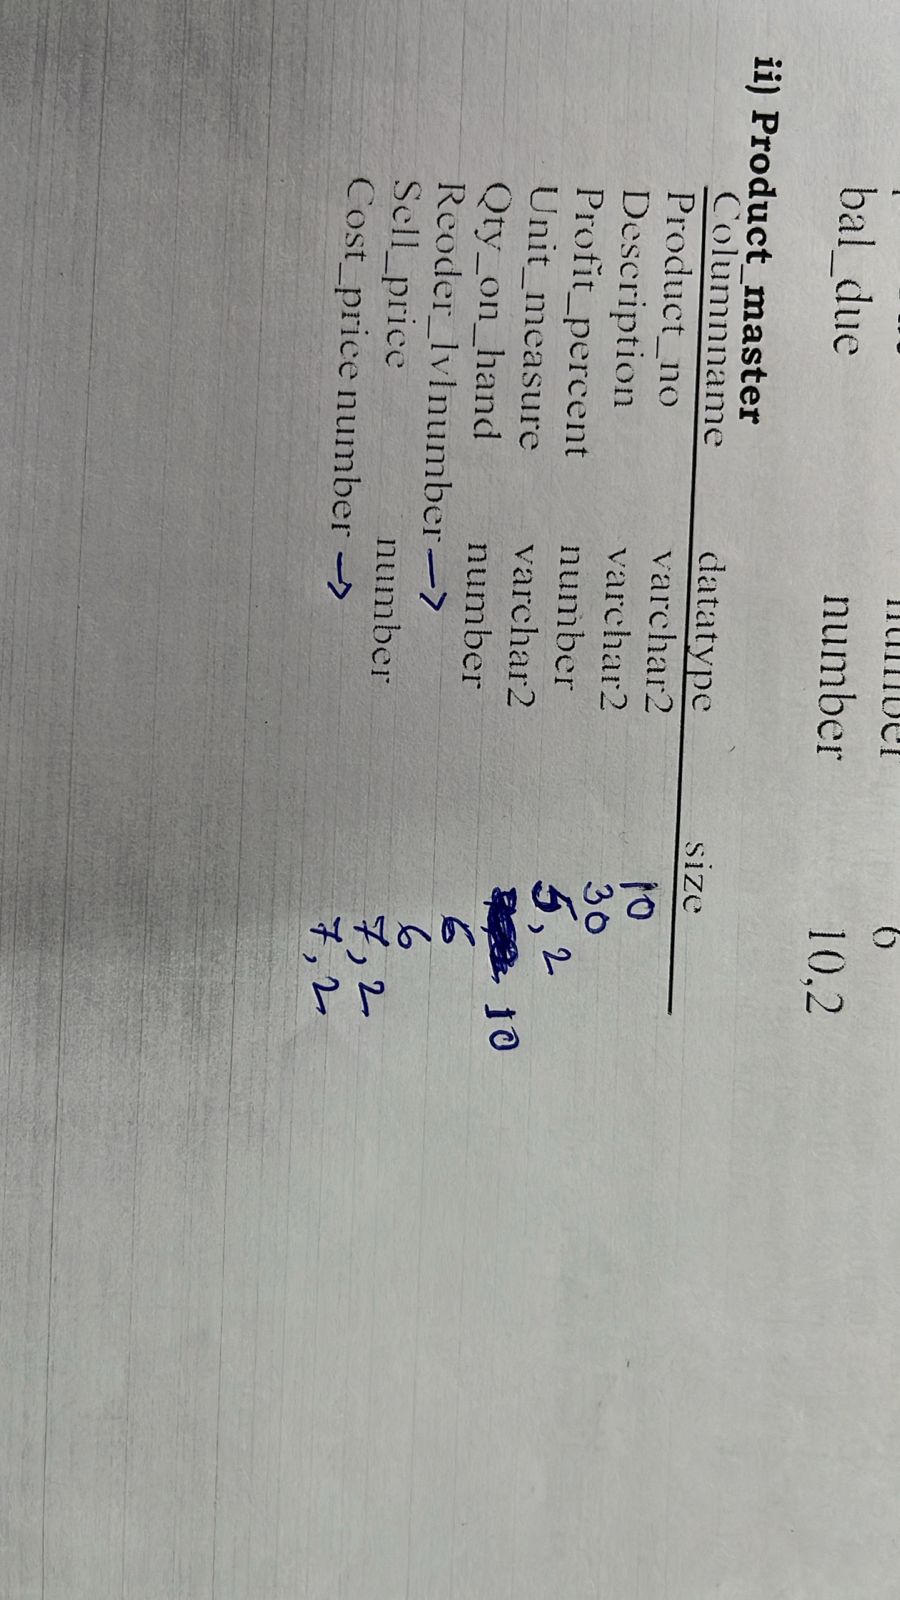 bal_due number 10,2
ii) Product_master
Columnname datatype size
Product_no varchar2 10
Description varchar2 30
Profit_percent number 5,2
Unit_measure varchar2 10
Qty_on_hand number 6
Reoder_lvlnumber → 6
Sell_price number 7,2
Cost_price number → 7,2